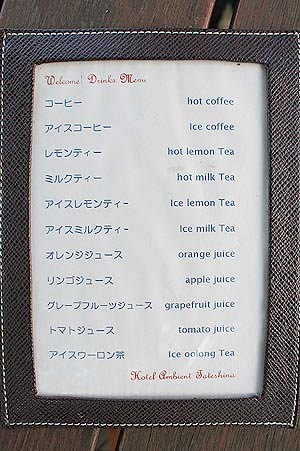 Welcome! Drinks Menu
コーヒー hot coffee
アイスコーヒー Ice coffee
レモンティー hot lemon Tea
ミルクティー hot milk Tea
アイスレモンティー Ice lemon Tea
アイスミルクティー Ice milk Tea
オレンジジュース orange juice
リンゴジュース apple juice
グレープフルーツジュース grapefruit juice
トマトジュース tomato juice
アイスウーロン茶 Ice oolong Tea
Hotel Ambient Tateshina